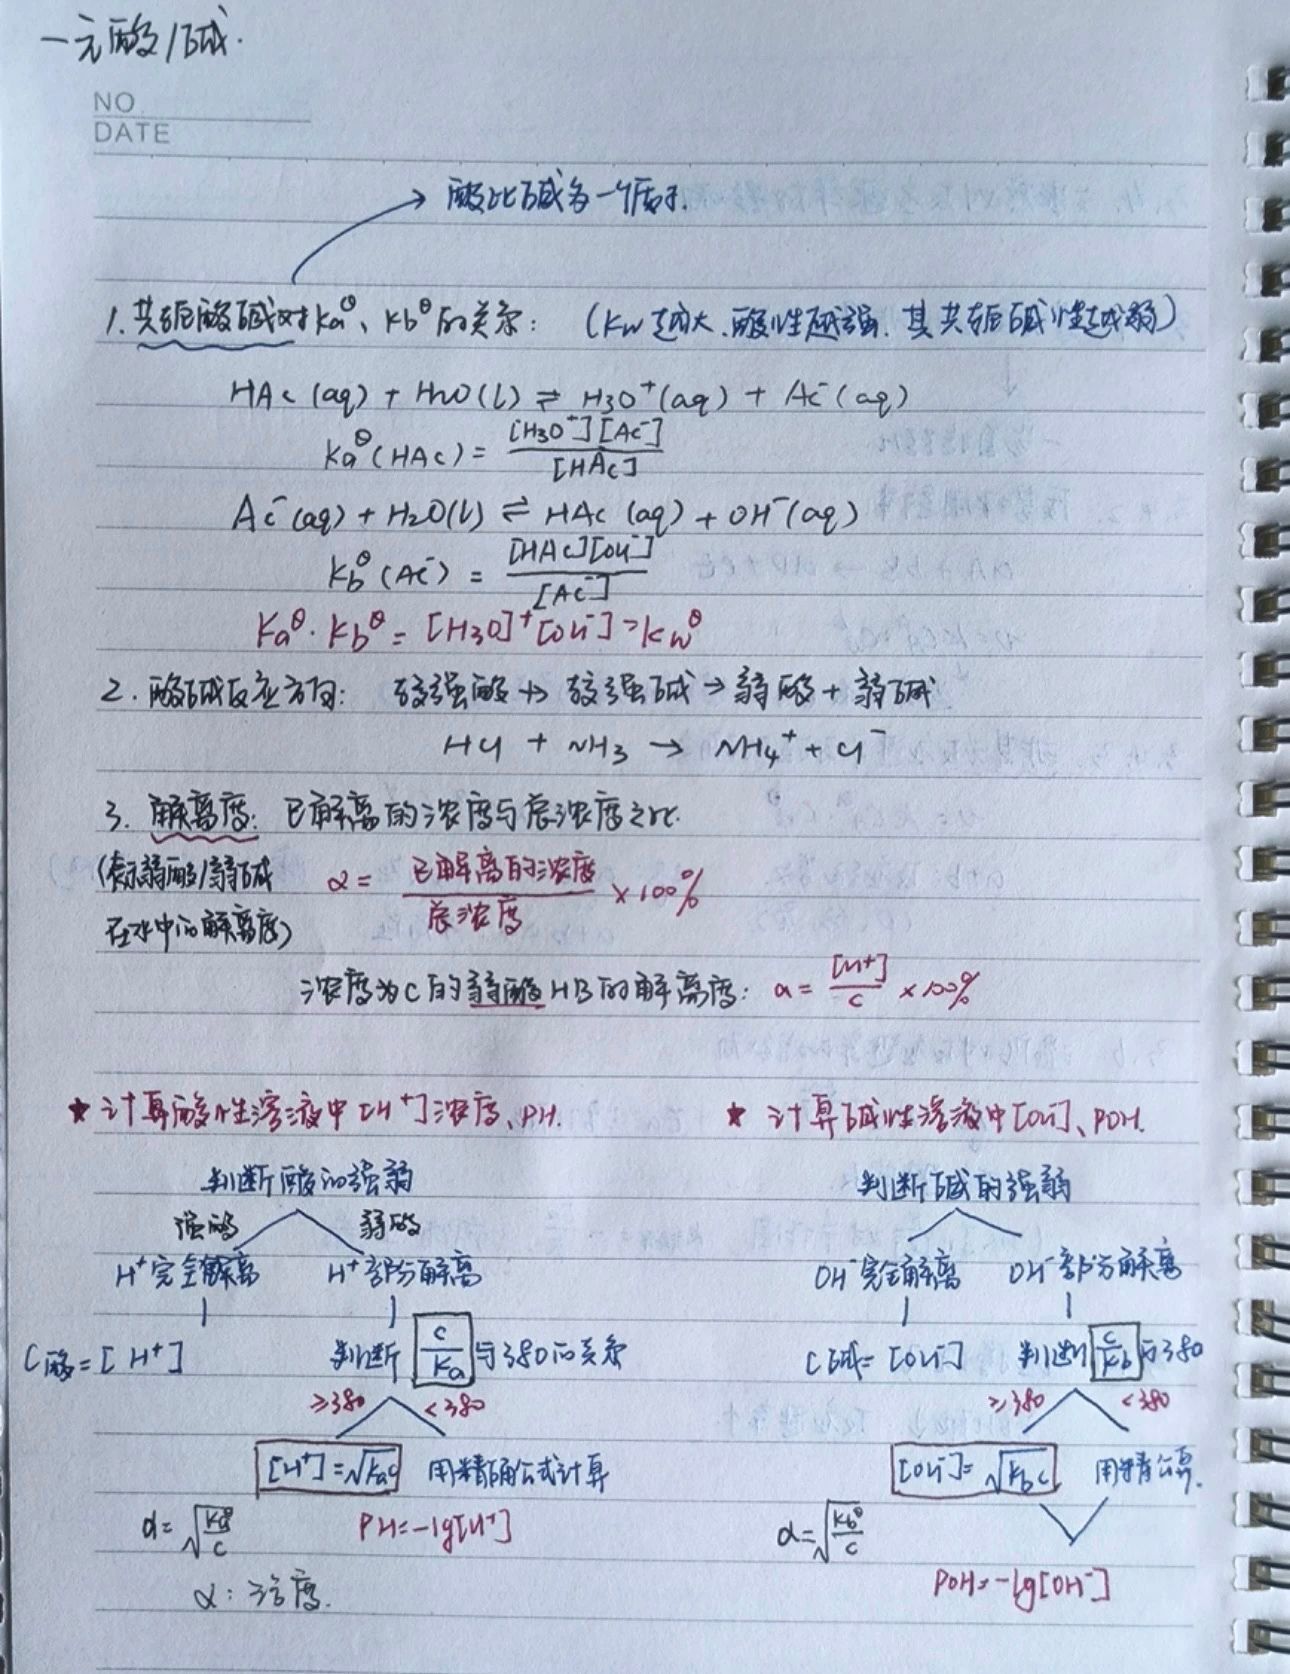 一元酸/碱.
NO.
DATE
→ 酸比碱多一个质子.
1. 共轭酸碱对Ka^θ、Kb^θ的关系: (Kw越大.酸性越强.其共轭碱性越弱)
HAc(aq) + H2O(l) ⇌ H3O⁺(aq) + Ac⁻(aq)
Ka^θ(HAc) = [H3O⁺][Ac⁻] / [HAc]
Ac⁻(aq) + H2O(l) ⇌ HAc(aq) + OH⁻(aq)
Kb^θ(Ac⁻) = [HAc][OH⁻] / [Ac⁻]
Ka^θ · Kb^θ = [H3O]⁺[OH⁻] = Kw^θ
2. 酸碱反应方向: 较强酸 + 较强碱 → 弱酸 + 弱碱
HCl + NH3 → NH4⁺ + Cl⁻
3. 解离度: 已解离的浓度与总浓度之比.
(表示弱酸/弱碱
在水中的解离度)
α = 已解离的浓度 / 总浓度 × 100%
浓度为C的弱酸HB的解离度: α = [H⁺] / c × 100%
★ 计算酸性溶液中[H⁺]浓度、PH.
判断酸的强弱
强酸 弱酸
H⁺完全解离 H⁺部分解离
C酸 = [H⁺] 判断 c/Ka 与380的关系
≥380 <380
[H⁺] = √Kac 用精确公式计算
α = √(Ka^θ/c) PH = -lg[H⁺]
α: 浓度.
★ 计算碱性溶液中[OH⁻]、POH.
判断碱的强弱
OH⁻完全解离 OH⁻部分解离
C碱 = [OH⁻] 判断 c/Kb 与380
≥380 <380
[OH⁻] = √Kbc 用精公算.
α = √(Kb^θ/c)
POH = -lg[OH⁻]